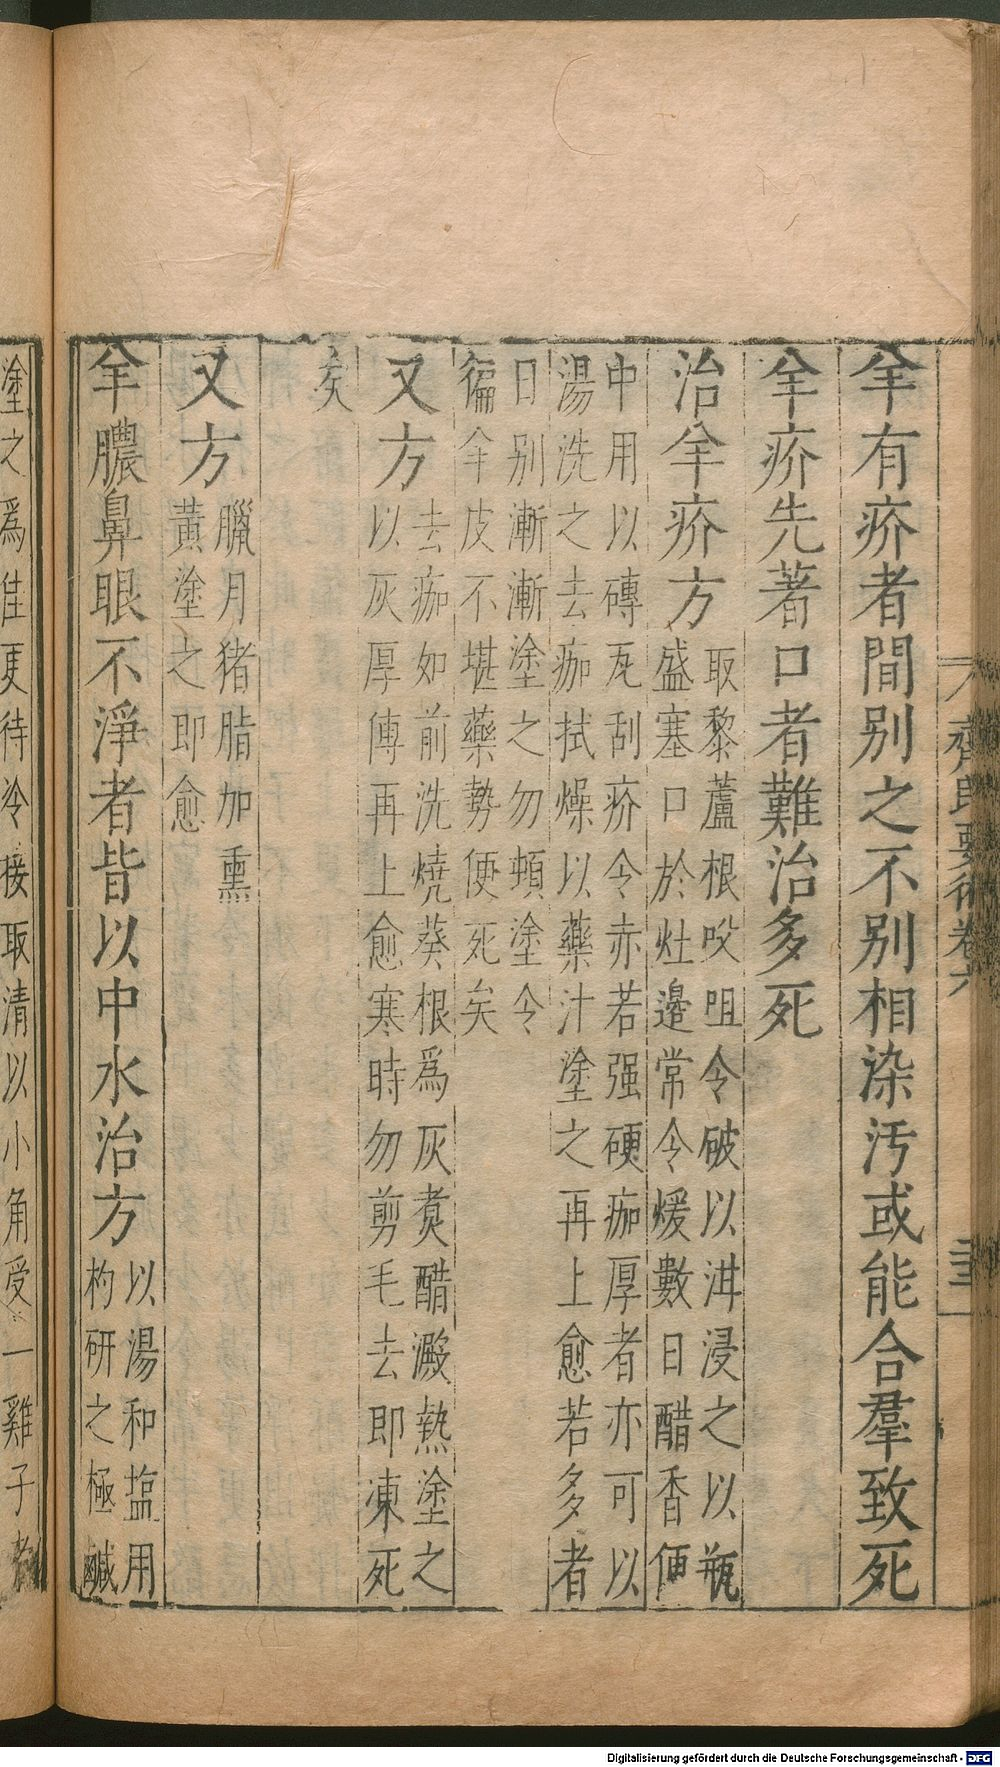 齊民要術卷六
羊有疥者間別之不別相染汚或能合羣致死
羊疥先著口者難治多死
治羊疥方
取黎蘆根㕮咀令破以泔浸之以瓶
盛塞口於灶邊常令煖數日醋香便
中用以磚瓦刮疥令赤若强硬痂厚者亦可以
湯洗之去痂拭燥以藥汁塗之再上愈若多者
日别漸漸塗之勿頓塗令
徧羊皮不堪藥勢便死矣
又方
去痂如前洗燒葵根爲灰煑醋澱熱塗之
以灰厚傅再上愈寒時勿剪毛去即凍死
矣
又方
臘月猪脂加熏
黃塗之即愈
羊膿鼻眼不淨者皆以中水治方
以湯和塩用
杓研之極鹹
塗之爲佳更待冷接取清以小角受一雞子者
Digitalisierung gefördert durch die Deutsche Forschungsgemeinschaft - DFG